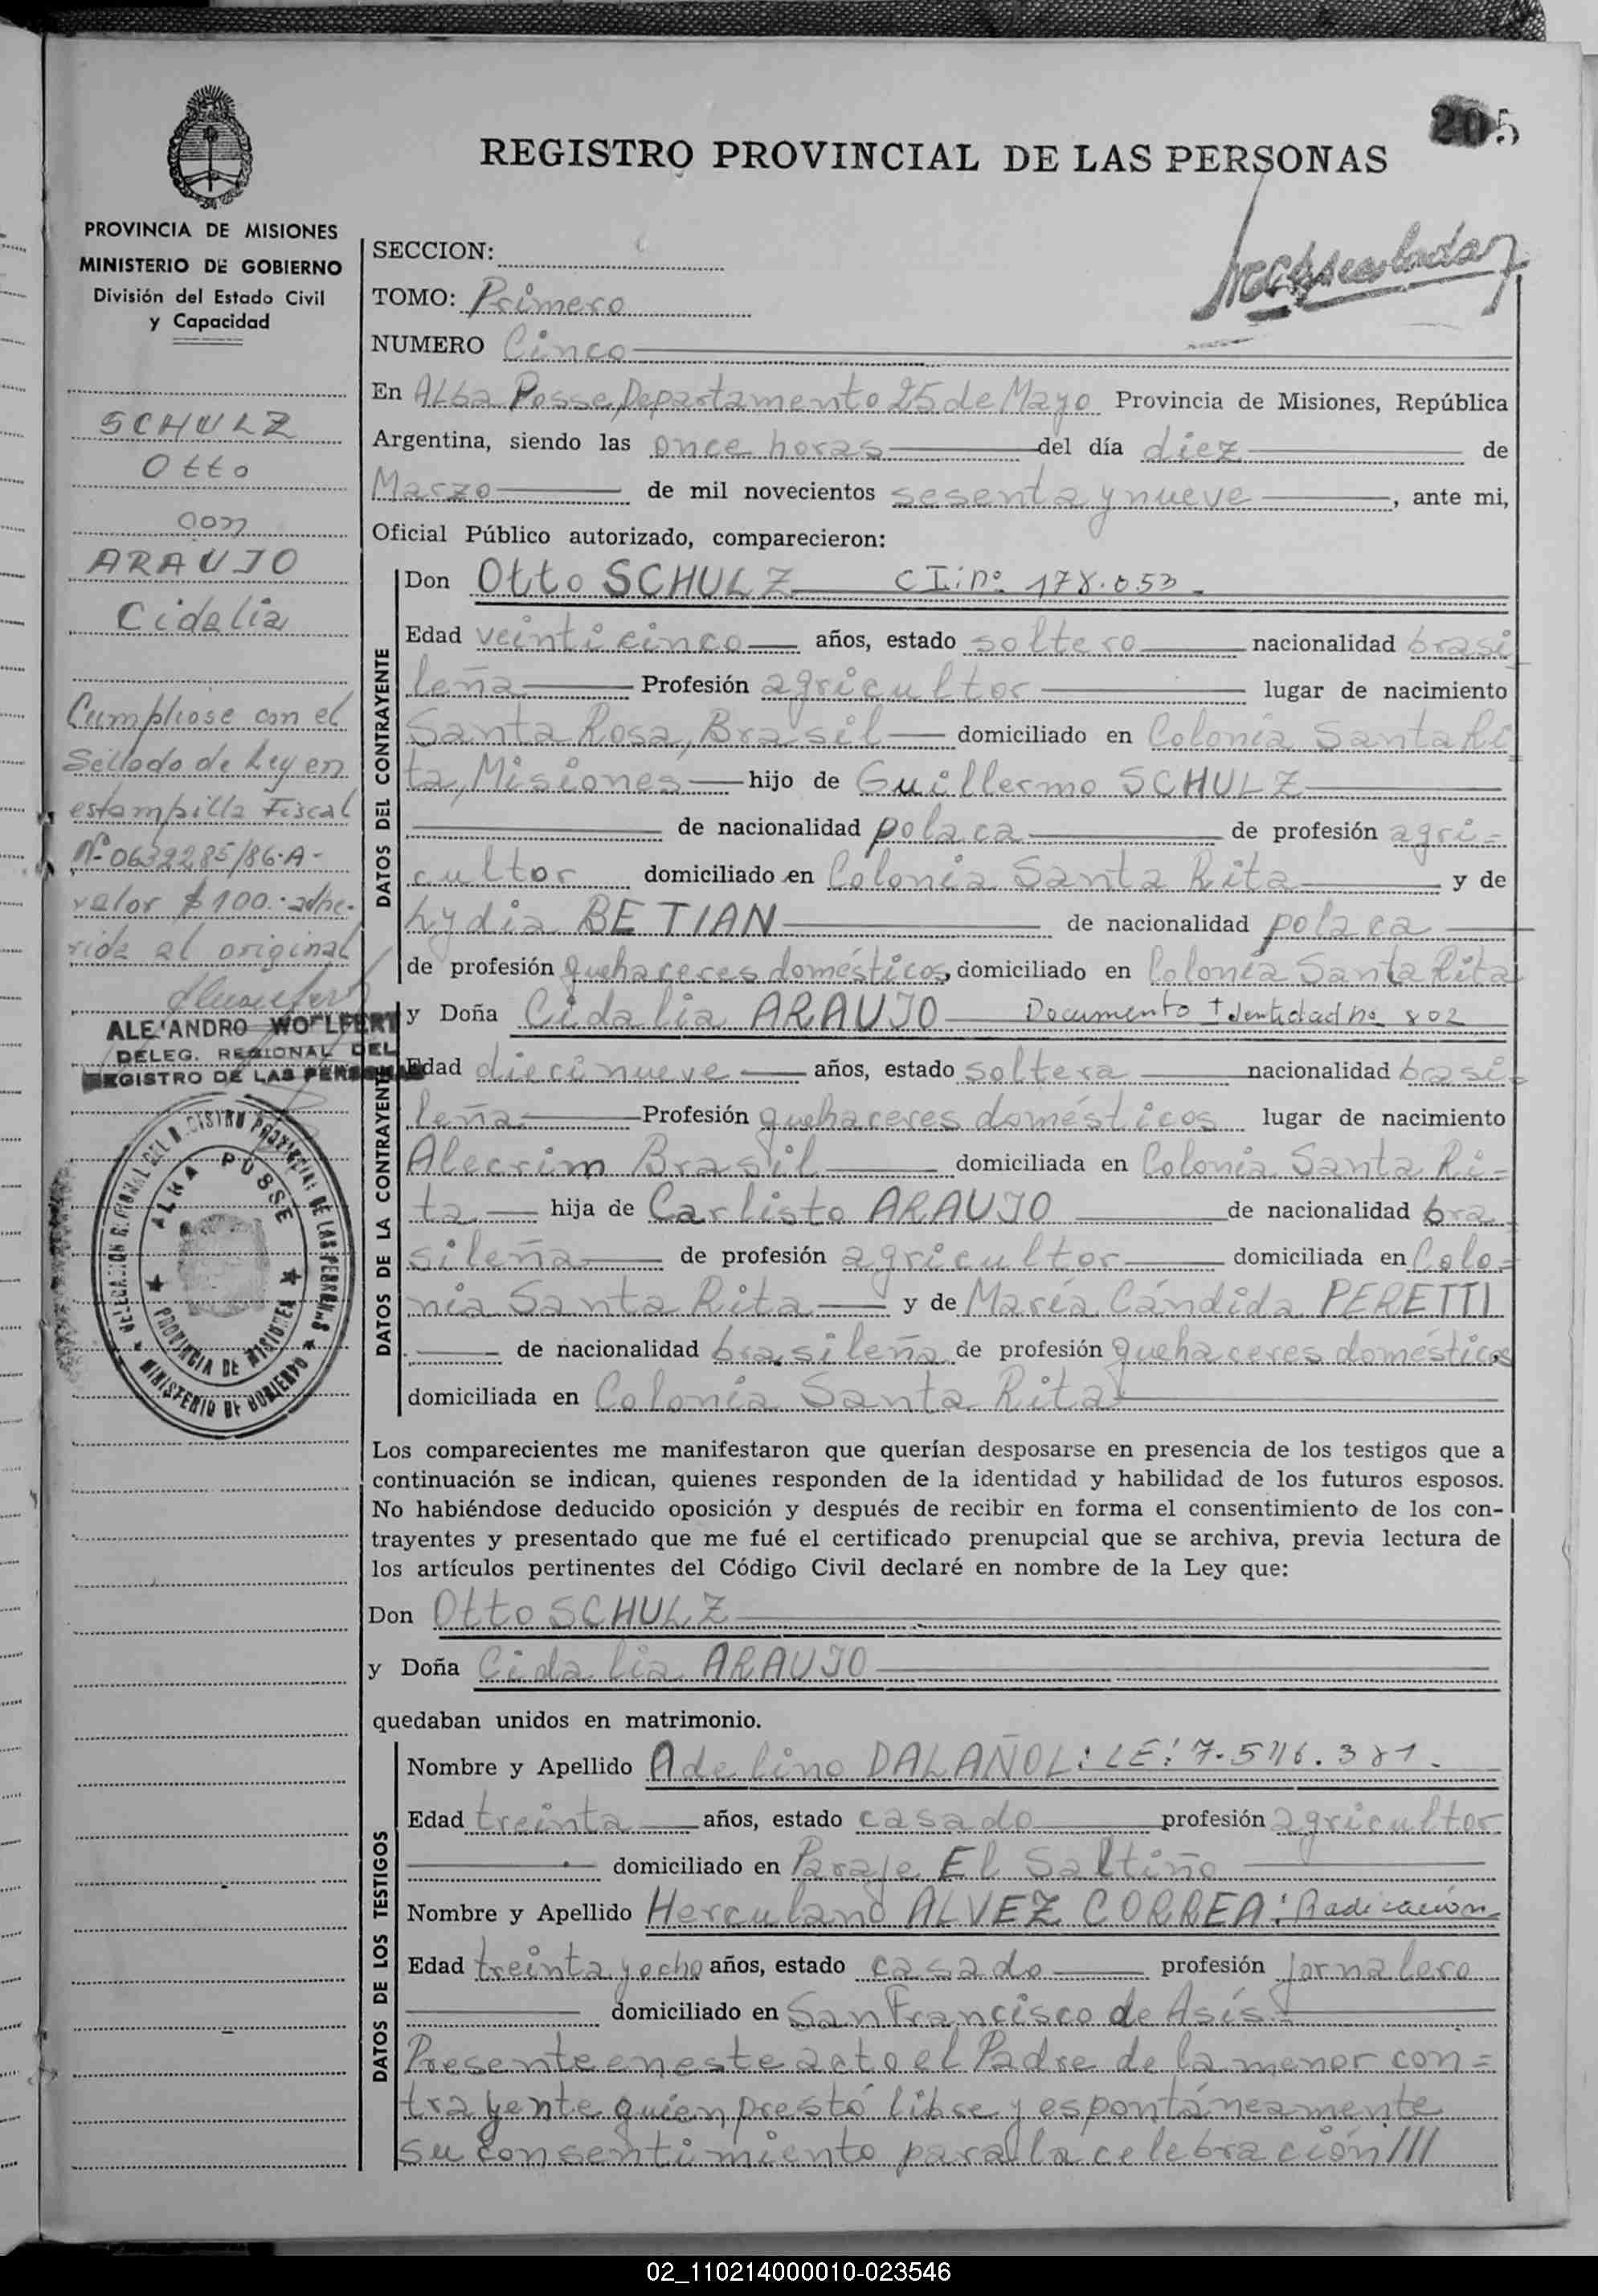 205
REGISTRO PROVINCIAL DE LAS PERSONAS
PROVINCIA DE MISIONES
MINISTERIO DE GOBIERNO
División del Estado Civil
y Capacidad
SCHULZ
Otto
con
ARAUJO
Cidalia
Cumpliose con el
Sellado de Ley en
estampilla Fiscal
Nº 0632285/86-A-
valor $ 100.- adhe-
rida al original
ALEJANDRO WOLFERT
DELEG. REGIONAL DEL
REGISTRO DE LAS PERSONAS
DELEGACION REGIONAL DEL REGISTRO PROVINCIAL DE LAS PERSONAS
ALBA POSSE
PROVINCIA DE MISIONES
MINISTERIO DE GOBIERNO
SECCION:
TOMO: Primero
NUMERO Cinco
En Alba Posse, Departamento 25 de Mayo Provincia de Misiones, República
Argentina, siendo las once horas del día diez de
Marzo de mil novecientos sesenta y nueve, ante mi,
Oficial Público autorizado, comparecieron:
DATOS DEL CONTRAYENTE
Don Otto SCHULZ CI: nº 178.053-
Edad veinticinco años, estado soltero nacionalidad brasi
leña Profesión agricultor lugar de nacimiento
Santa Rosa, Brasil domiciliado en Colonia Santa Ri
ta, Misiones hijo de Guillermo SCHULZ
de nacionalidad polaca de profesión agri=
cultor domiciliado en Colonia Santa Rita y de
Lydia BETIAN de nacionalidad polaca
de profesión quehaceres domésticos, domiciliado en Colonia Santa Rita
DATOS DE LA CONTRAYENTE
y Doña Cidalia ARAUJO Documento Identidad no 802
Edad diecinueve años, estado soltera nacionalidad brasi=
leña Profesión quehaceres domésticos lugar de nacimiento
Alecrim Brasil domiciliada en Colonia Santa Ri=
ta hija de Carlisto ARAUJO de nacionalidad bra=
sileña de profesión agricultor domiciliada en Colo=
nia Santa Rita y de María Cándida PERETTI
de nacionalidad brasileña de profesión quehaceres domésticos
domiciliada en Colonia Santa Rita
Los comparecientes me manifestaron que querían desposarse en presencia de los testigos que a
continuación se indican, quienes responden de la identidad y habilidad de los futuros esposos.
No habiéndose deducido oposición y después de recibir en forma el consentimiento de los con-
trayentes y presentado que me fué el certificado prenupcial que se archiva, previa lectura de
los artículos pertinentes del Código Civil declaré en nombre de la Ley que:
Don Otto SCHULZ
y Doña Cidalia ARAUJO
quedaban unidos en matrimonio.
DATOS DE LOS TESTIGOS
Nombre y Apellido Adelino DALAÑOL: LE: 7.516.381.
Edad treinta años, estado casado profesión agricultor
domiciliado en Paraje El Saltiño
Nombre y Apellido Herculano ALVEZ CORREA: Radicación
Edad treinta y ocho años, estado casado profesión jornalero
domiciliado en San Francisco de Asís
Presente en este acto el Padre de la menor con=
trayente quien prestó libre y espontáneamente
su consentimiento para la celebración///
02_110214000010-023546